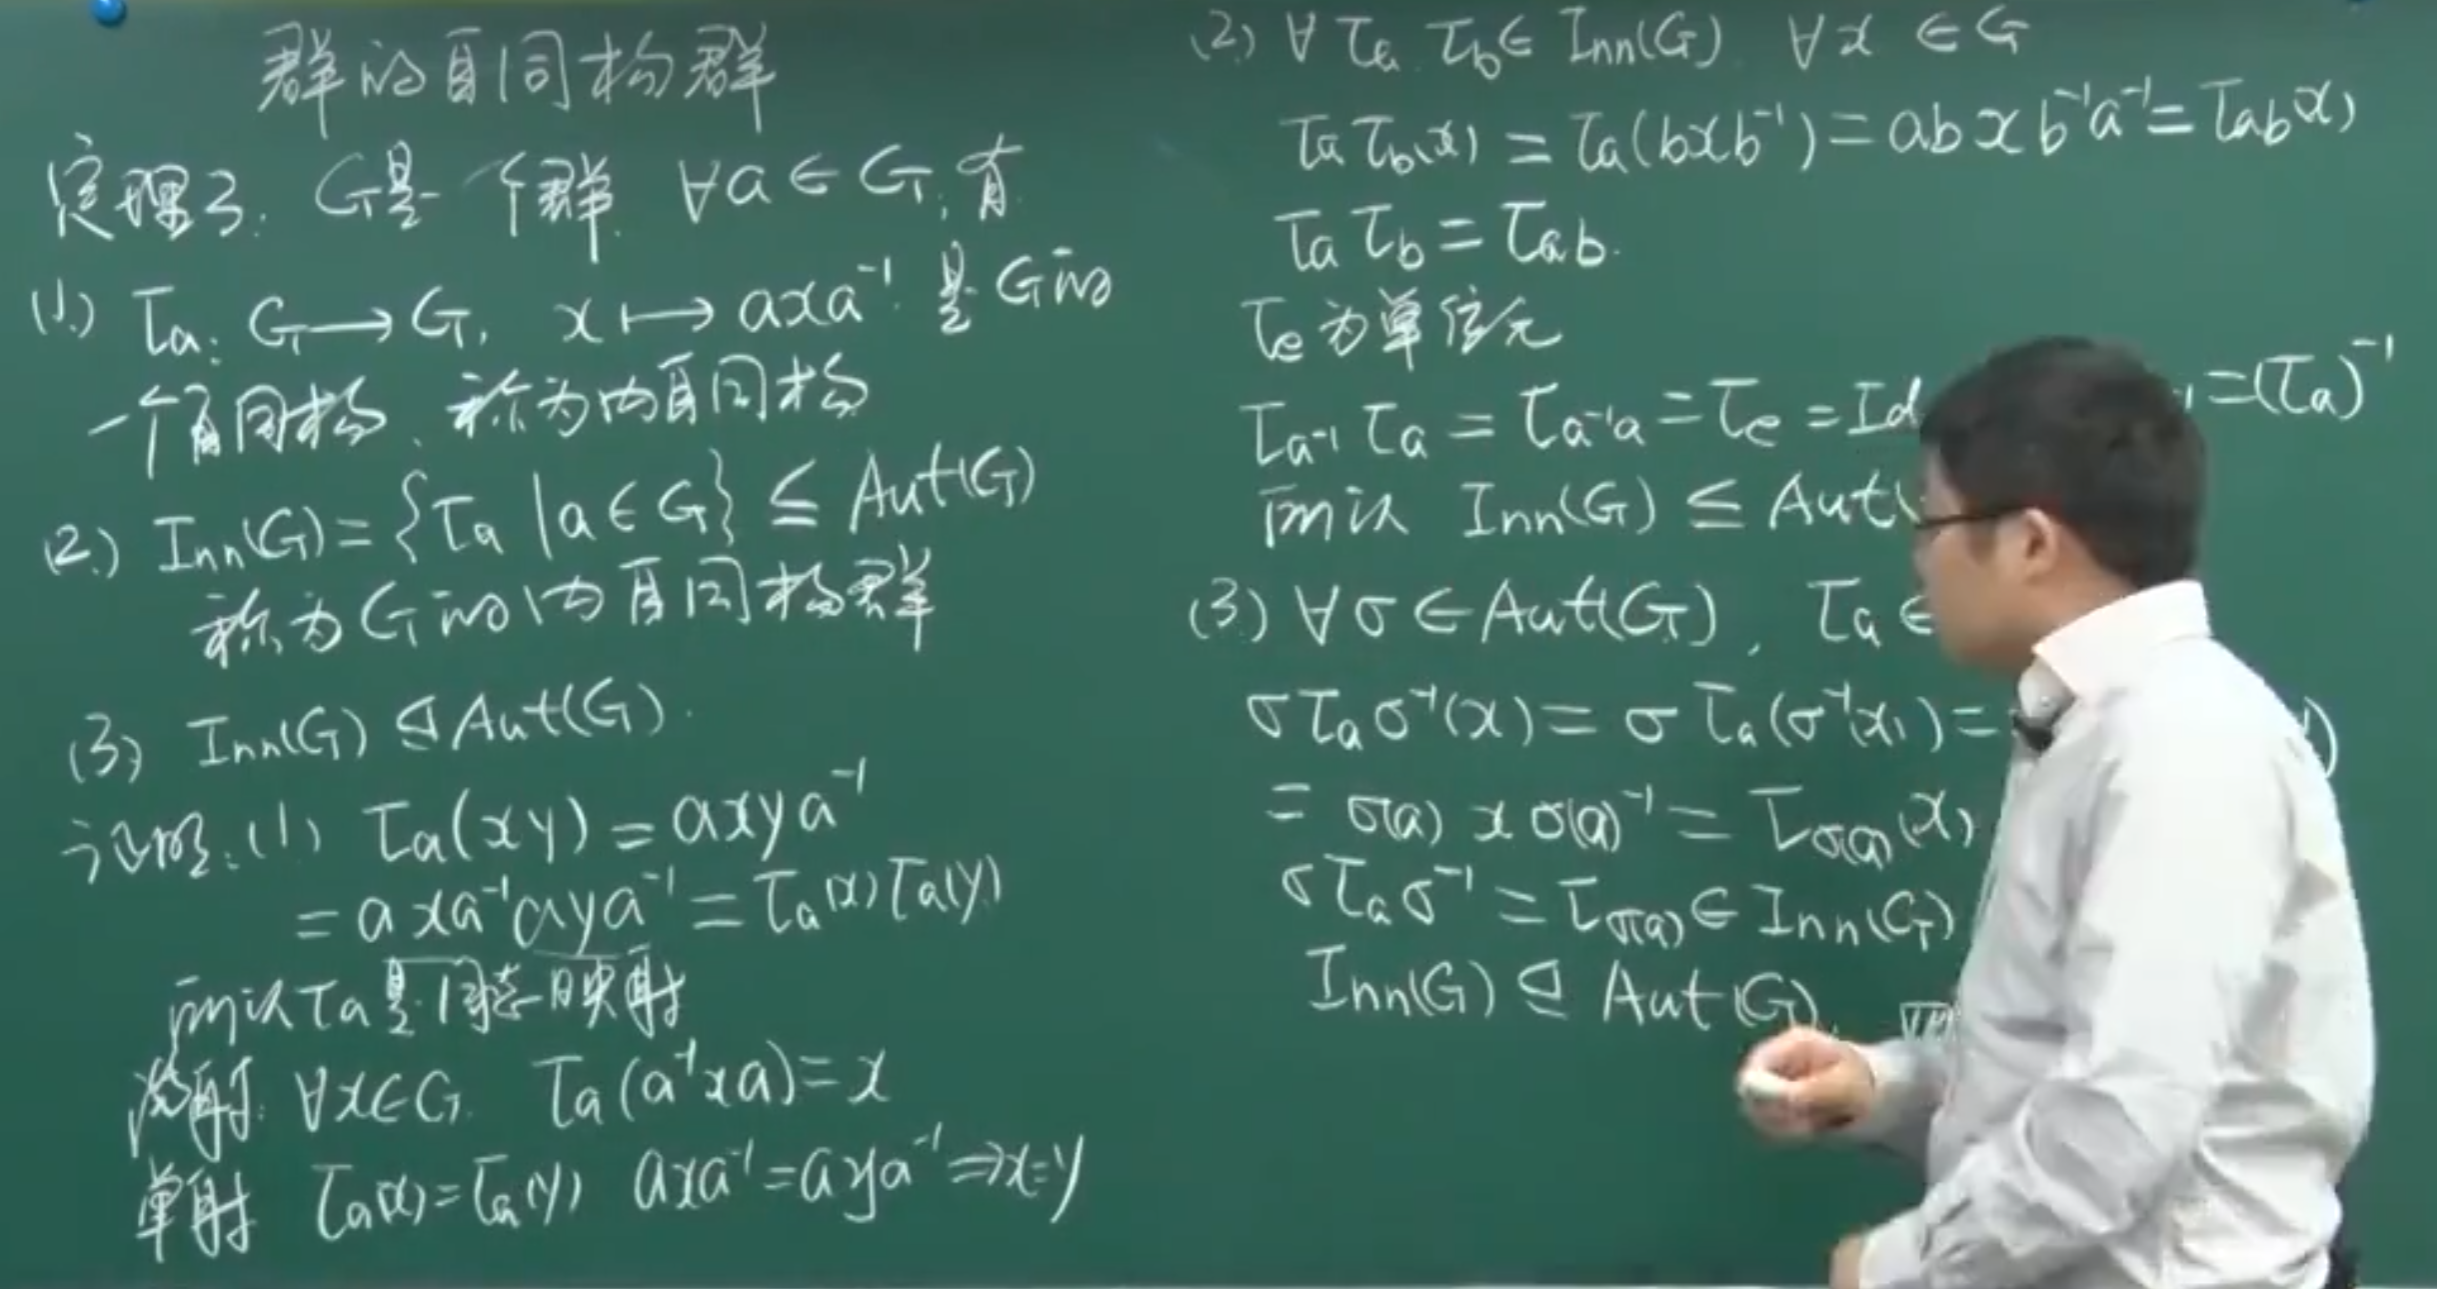 群的自同构群
定理3. G是一个群. ∀a∈G, 有
(1) τa: G→G, x↦axa⁻¹ 是G的
一个自同构, 称为内自同构
(2) Inn(G)={τa | a∈G} ≤ Aut(G)
称为G的内自同构群
(3) Inn(G) ⊴ Aut(G).
证明: (1) τa(xy)=axya⁻¹
=axa⁻¹aya⁻¹=τa(x)τa(y)
所以τa是同态映射
满射: ∀x∈G. τa(a⁻¹xa)=x
单射 τa(x)=τa(y) axa⁻¹=aya⁻¹⇒x=y
(2) ∀τa, τb∈Inn(G) ∀x∈G
τaτb(x)=τa(bxb⁻¹)=abxb⁻¹a⁻¹=τab(x)
τaτb=τab.
τe为单位元
τa⁻¹τa=τa⁻¹a=τe=Id =(τa)⁻¹
所以 Inn(G) ≤ Aut(
(3) ∀σ∈Aut(G), τa∈
στaσ⁻¹(x)=στa(σ⁻¹(x))= )
=σ(a)xσ(a)⁻¹=τσ(a)(x)
στaσ⁻¹=τσ(a)∈Inn(G)
Inn(G) ⊴ Aut(G).